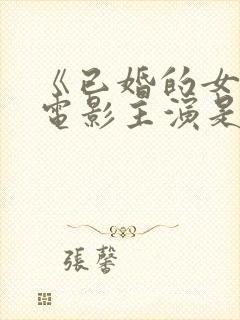 《已婚的女
电影主演是
張馨